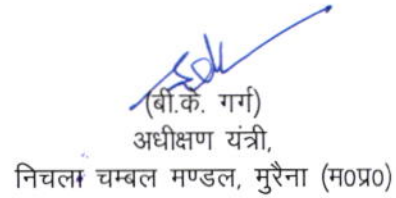 (बी.के. गर्ग)
अधीक्षण यंत्री,
निचला चम्बल मण्डल, मुरैना (म0प्र0)